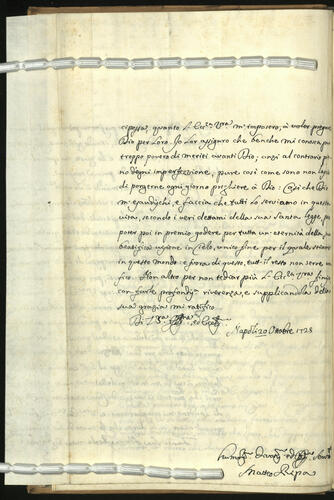 cipessa, quanto m'imposero, à voler pregare
Dio per Loro. Io Lor assiguro che benche mi conosca pur
troppo povero di meriti avanti Dio, anzi al contrario pie
no d'ogni imperfezzione, pure così come sono non lascio
di porgerne ogni giorno preghiere à Dio: che Dio
m'esaudischi, e faccia che tutti Lo serviamo in questa
vita, secondo i veri dettami della sua Santa legge per
poter poi in premio godere per tutta un'eternità della sua
beatifica visione in Cielo, unico fine per il quale stiamo
in questo mondo e fuora di questo, tutto il resto non serve
Non altro per non tediar più finisco
con farle profondissima riverenza, e supplicandola della
sua grazia mi ratifico
Di
Napoli 20 Ottobre 1728
Matteo Ripa